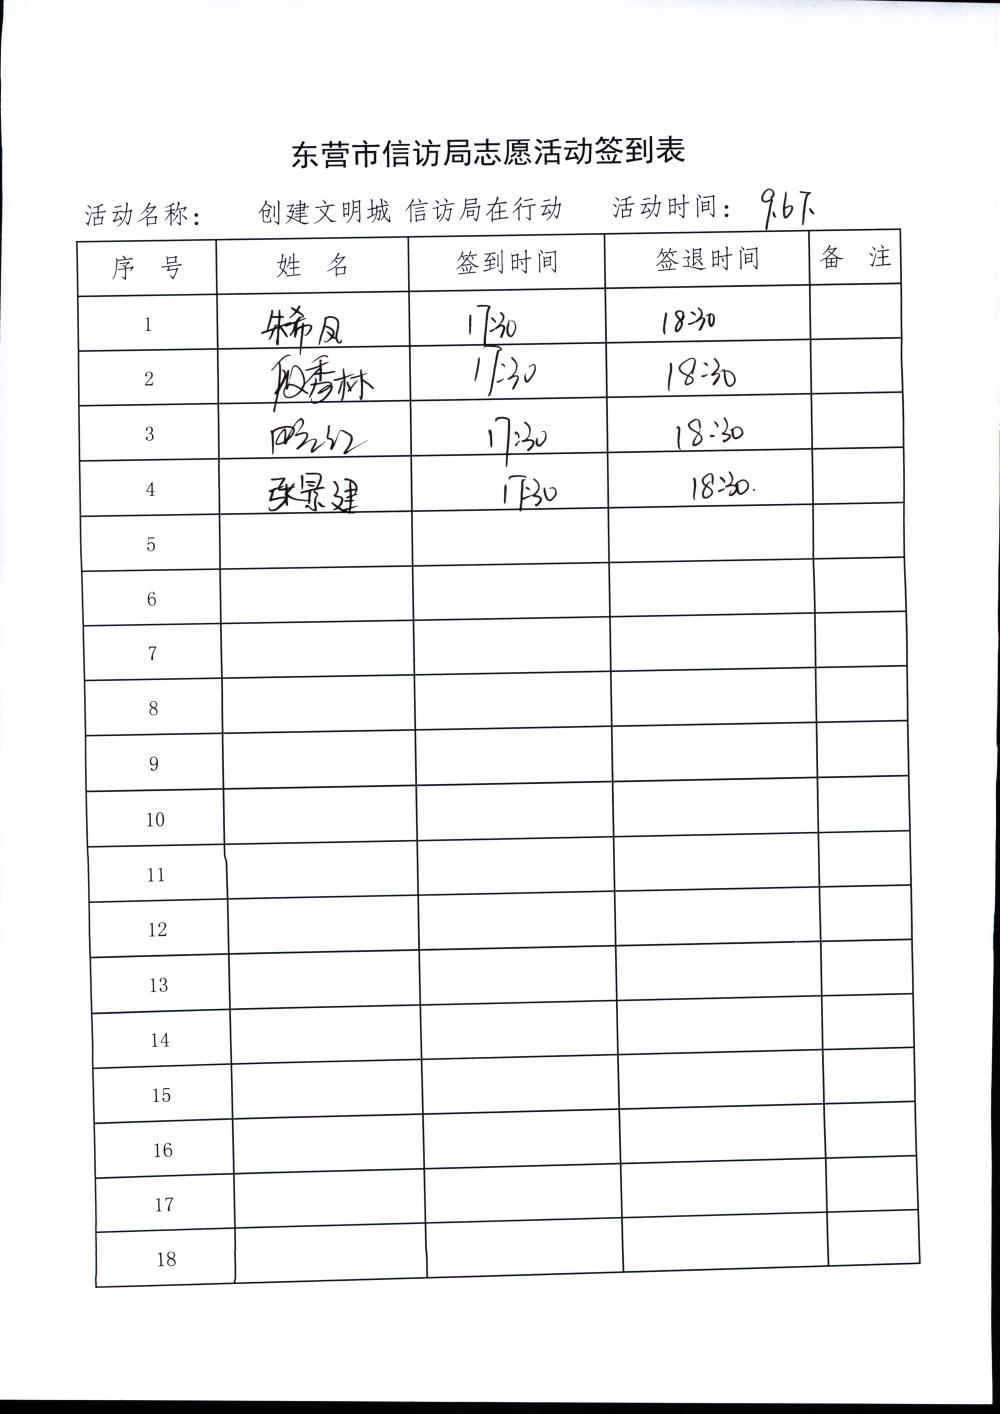 东营市信访局志愿活动签到表
活动名称： 创建文明城 信访局在行动 活动时间：9.6下.
序 号 姓 名 签到时间 签退时间 备 注
1 朱希凤 17:30 18:30
2 段秀林 17:30 18:30
3 17:30 18:30
4 张景建 17:30 18:30.
5
6
7
8
9
10
11
12
13
14
15
16
17
18